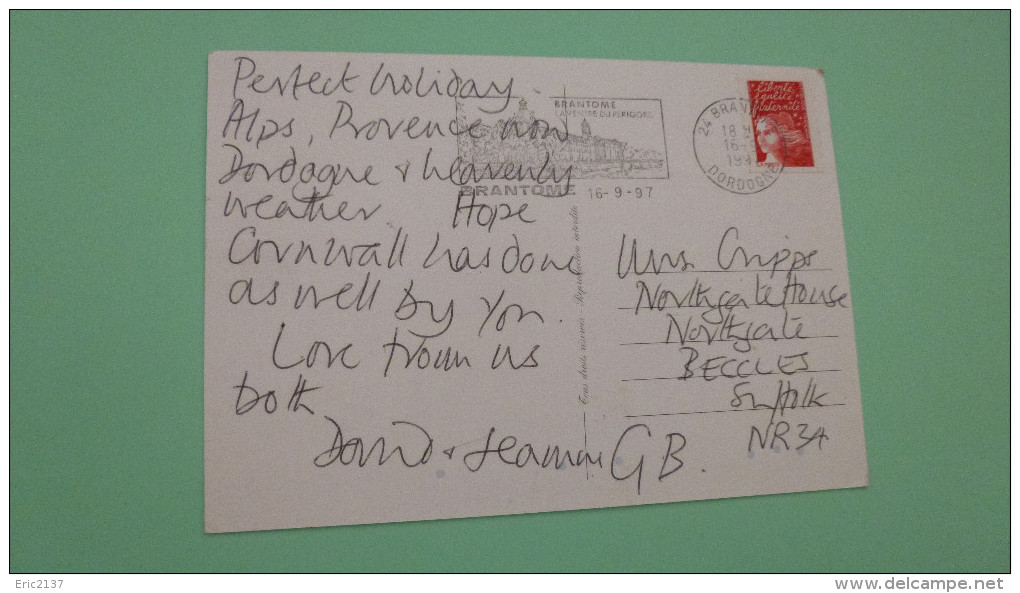 Perfect holiday.
Alps, Provence now
Dordogne & heavenly
weather. Hope
Cornwall has done
as well by you.
Love from us
both
David & Jeanne
BRANTOME
LA VENISE DU PERIGORD
BRANTOME
16-9-97
24 BRANT
18 H
16-9
199
DORDOGNE
Liberté
égalité
fraternité
Tous droits réservés - Reproduction interdite
Mrs. Cripps
Northgate House
Northgate
BECCLES
Suffolk
NR34
GB.
Eric2137
www.delcampe.net